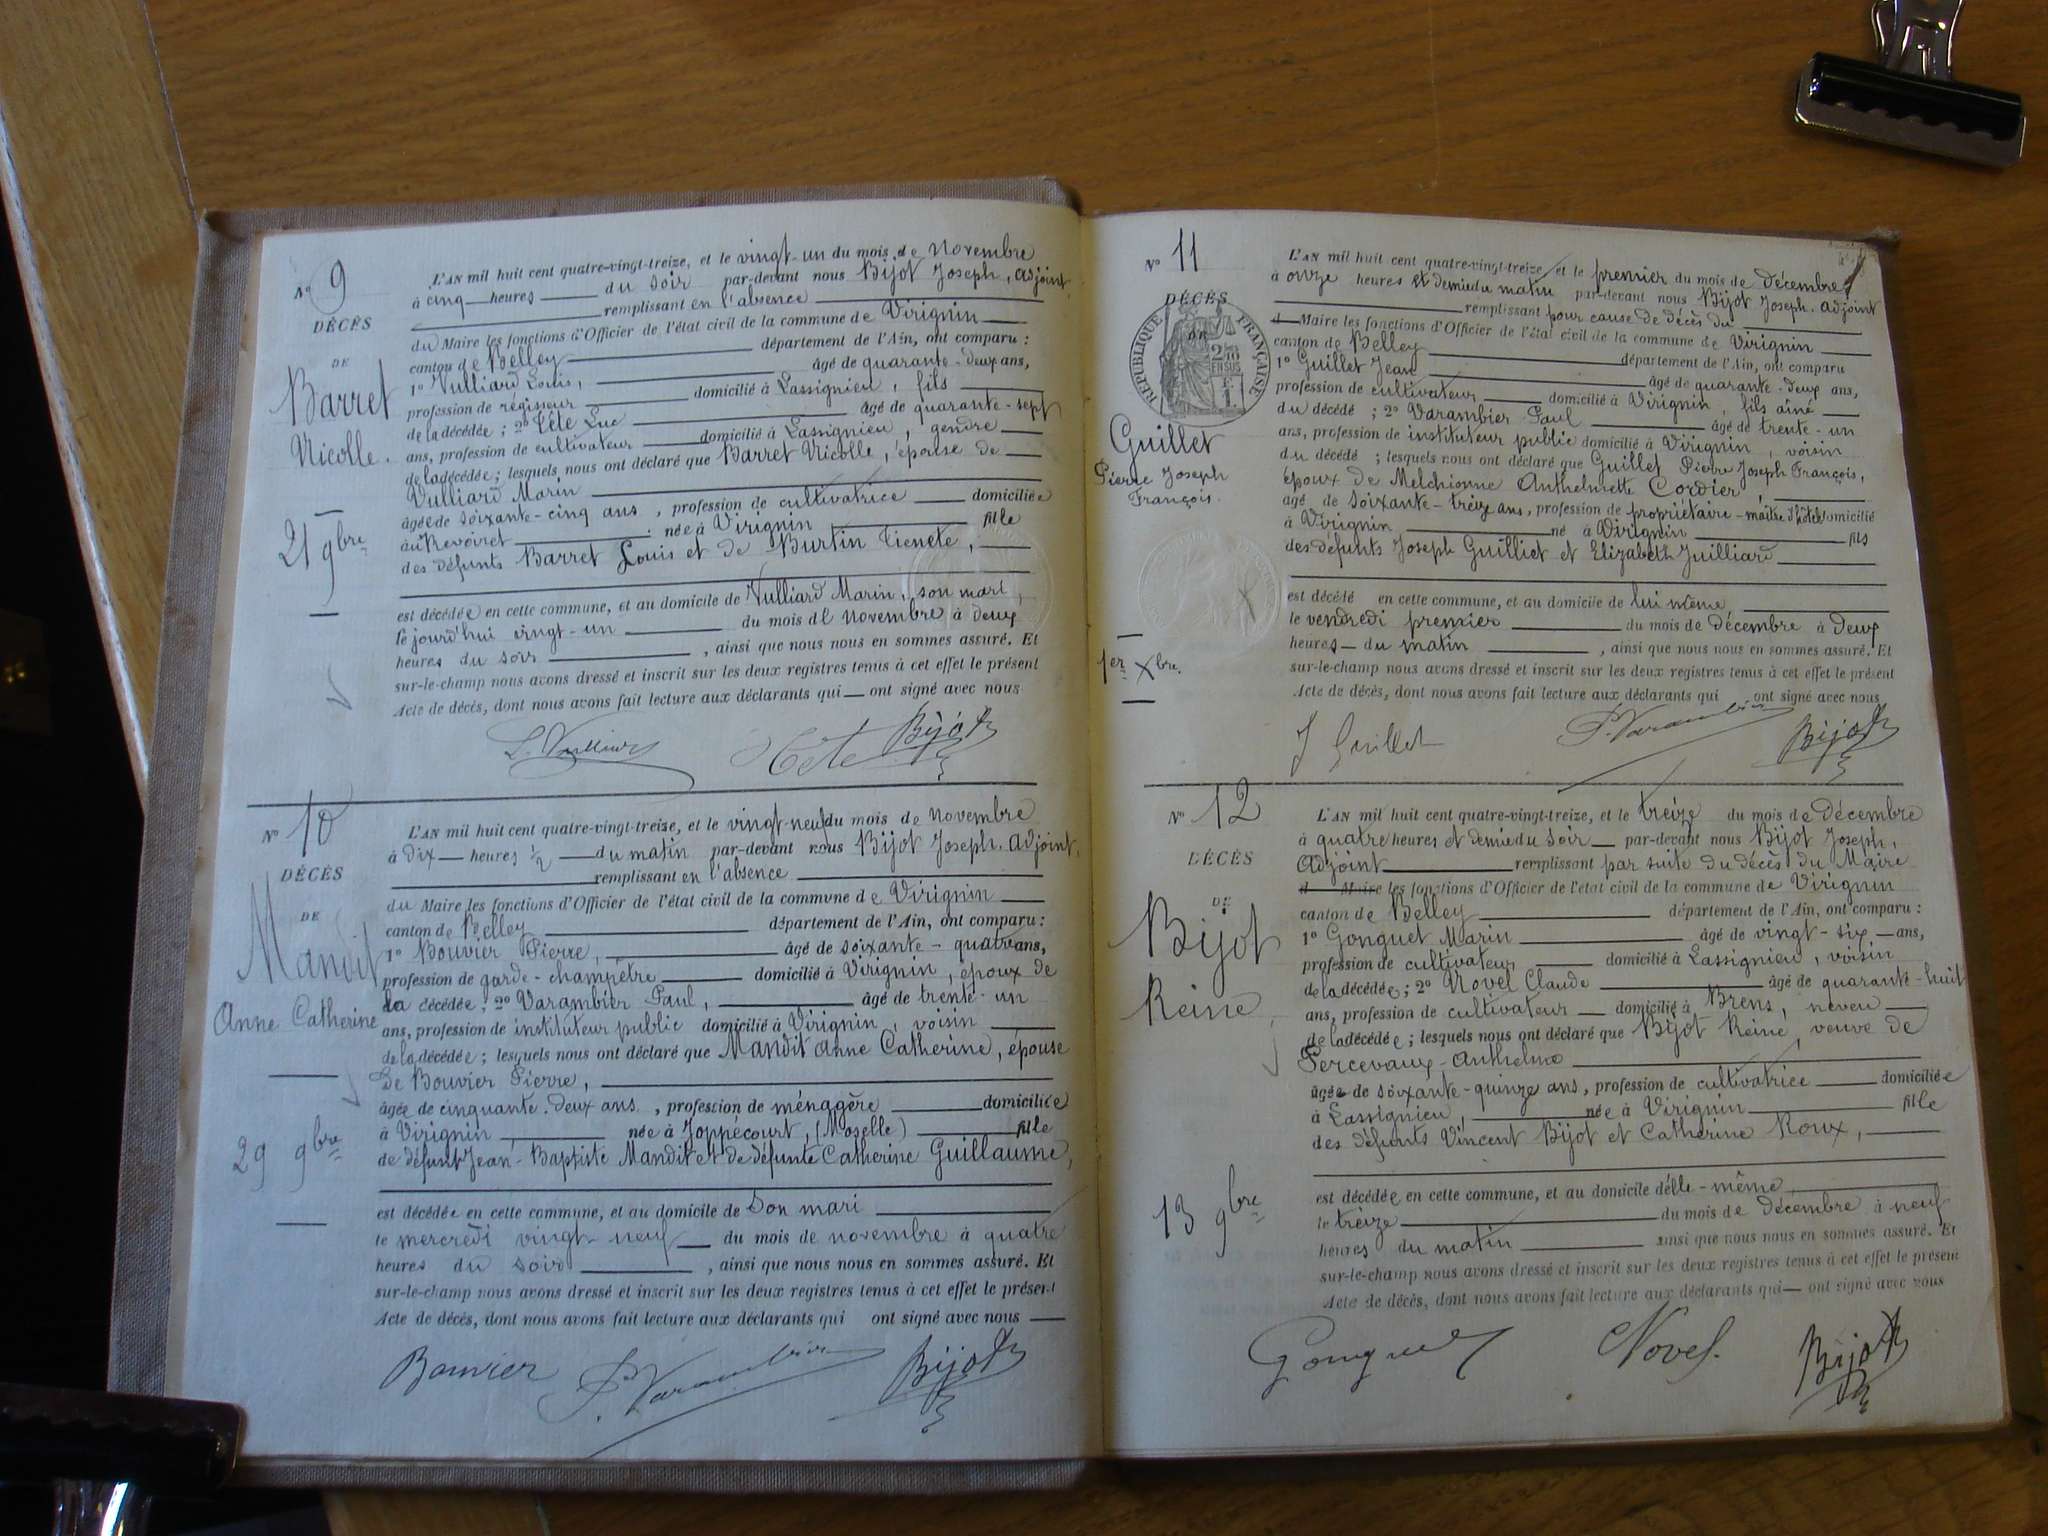 N° 9
DÉCÈS
DE
Barret
Nicolle.
21 9bre
L'AN mil huit cent quatre-vingt-treize, et le vingt-un du mois de Novembre
à cinq heures du soir par-devant nous Bijot Joseph, adjoint,
remplissant en l'absence
du Maire les fonctions d'Officier de l'état civil de la commune de Virignin
canton de Belley département de l'Ain, ont comparu :
1° Vulliard Louis, âgé de quarante-deux ans,
profession de régisseur domicilié à Lassignieu, fils
de la décédée ; 2° Cête Luc âgé de quarante-sept
ans, profession de cultivateur domicilié à Lassignieu, gendre
de la décédée ; lesquels nous ont déclaré que Barret Nicolle, épouse de
Vulliard Marin
âgée de soixante-cinq ans, profession de cultivatrice domiciliée
au Revoiret née à Virignin fille
des défunts Barret Louis et de Burtin
est décédée en cette commune, et au domicile de Vulliard Marin, son mari,
le jourd'hui vingt-un du mois de novembre à deux
heures du soir, ainsi que nous nous en sommes assuré. Et
sur-le-champ nous avons dressé et inscrit sur les deux registres tenus à cet effet le présent
Acte de décès, dont nous avons fait lecture aux déclarants qui — ont signé avec nous
L. Vulliard Cête Bijot
N° 10
DÉCÈS
DE
Mandit
Anne Catherine
29 9bre
L'AN mil huit cent quatre-vingt-treize, et le vingt-neuf du mois de novembre
à dix heures 1/2 du matin par-devant nous Bijot Joseph. adjoint,
remplissant en l'absence
du Maire les fonctions d'Officier de l'état civil de la commune de Virignin
canton de Belley département de l'Ain, ont comparu :
1° Bouvier Pierre, âgé de soixante-quatre ans,
profession de garde-champêtre domicilié à Virignin, époux de
la décédée ; 2° Varambier Paul, âgé de trente-un
ans, profession de instituteur public domicilié à Virignin, voisin
de la décédée ; lesquels nous ont déclaré que Mandit Anne Catherine, épouse
de Bouvier Pierre,
âgée de cinquante-deux ans, profession de ménagère domiciliée
à Virignin, née à Joppécourt, (Moselle) fille
de défunt Jean-Baptiste Mandit et de défunte Catherine Guillaume,
est décédée en cette commune, et au domicile de son mari
le mercredi vingt-neuf du mois de novembre à quatre
heures du soir, ainsi que nous nous en sommes assuré. Et
sur-le-champ nous avons dressé et inscrit sur les deux registres tenus à cet effet le présent
Acte de décès, dont nous avons fait lecture aux déclarants qui ont signé avec nous
Bouvier P. Varambier Bijot
N° 11
DÉCÈS
DE
RÉPUBLIQUE FRANÇAISE
2/10 EN SUS
1 F.
Guillet
Pierre Joseph
François.
1er Xbre.
L'AN mil huit cent quatre-vingt-treize, et le premier du mois de décembre
à onze heures et demie du matin par-devant nous Bijot Joseph. adjoint
remplissant pour cause de décès du
d Maire les fonctions d'Officier de l'état civil de la commune de Virignin
canton de Belley département de l'Ain, ont comparu
1° Guillet Jean âgé de quarante-deux ans,
profession de cultivateur domicilié à Virignin, fils aîné
du décédé ; 2° Varambier Paul âgé de trente-un
ans, profession de instituteur public domicilié à Virignin, voisin
du décédé ; lesquels nous ont déclaré que Guillet Pierre Joseph François,
époux de Melchionne Anthelmette Cordier,
âgé de soixante-treize ans, profession de propriétaire-maître d'hôtel domicilié
à Virignin né à Virignin fils
des défunts Joseph Guilliet et Elizabeth Juilliard
est décédé en cette commune, et au domicile de lui même
le vendredi premier du mois de décembre à deux
heures du matin, ainsi que nous nous en sommes assuré. Et
sur-le-champ nous avons dressé et inscrit sur les deux registres tenus à cet effet le présent
Acte de décès, dont nous avons fait lecture aux déclarants qui ont signé avec nous
J Guillet P. Varambier Bijot
N° 12
DÉCÈS
DE
Bijot
Reine
13 9bre
L'AN mil huit cent quatre-vingt-treize, et le treize du mois de décembre
à quatre heures et demie du soir par-devant nous Bijot Joseph,
adjoint remplissant par suite du décès du Maire
d Maire les fonctions d'Officier de l'état civil de la commune de Virignin
canton de Belley département de l'Ain, ont comparu :
1° Gonguet Marin âgé de vingt-six ans,
profession de cultivateur domicilié à Lassignieu, voisin
de la décédée ; 2° Novel Claude âgé de quarante-huit
ans, profession de cultivateur domicilié à Brens, neveu
de la décédée ; lesquels nous ont déclaré que Bijot Reine, veuve de
Percevaux Anthelme
âgée de soixante-quinze ans, profession de cultivatrice domiciliée
à Lassignieu, née à Virignin fille
des défunts Vincent Bijot et Catherine Roux,
est décédée en cette commune, et au domicile d'elle-même
le treize du mois de décembre à neuf
heures du matin ainsi que nous nous en sommes assuré. Et
sur-le-champ nous avons dressé et inscrit sur les deux registres tenus à cet effet le présent
Acte de décès, dont nous avons fait lecture aux déclarants qui — ont signé avec nous
Gonguet Novel. Bijot